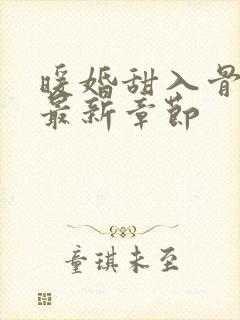 暖婚甜入骨
最新章节
童琪未至